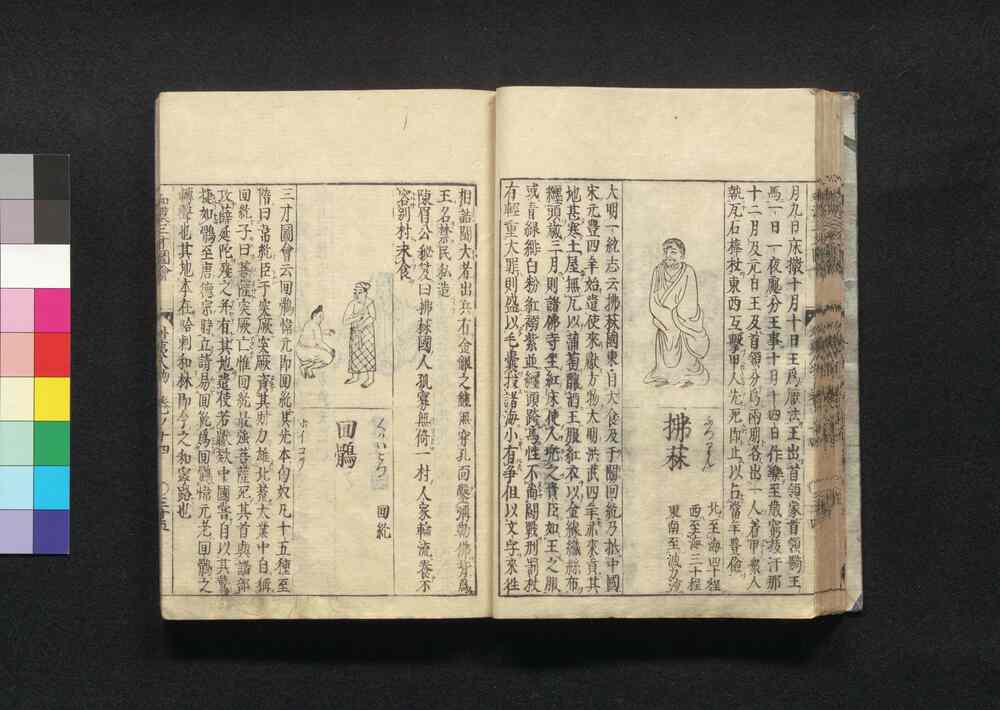 月九日床撒十月十日王爲厭法王出首領家首領騎王
馬一日一夜處分王事十月十四日作樂至歲窮拔汗那
十二月及元日王及首領分爲兩朋各出一人着甲衆人
執瓦石棒杖東西互擊甲人先死即止以占當年豊儉
拂菻
ふつりん
北至海四十程
西至海三十程
東南至
大明一統志云拂菻國東自大食及于闐回紇乃抵中國
宋元豊四年始遣使來獻方物大明洪武四年亦來貢其
地甚寒土屋無瓦以蒲萄釀酒王服紅衣以金線織絲布
纏頭歲三月則詣佛寺坐紅床使人舁之貴臣如王之服
或青緑緋白粉紅褐紫並纏頭跨馬性不尚鬪戰刑罰杖
有輕重大罪則盛以毛囊投諸海小有爭但以文字來往
相詰鬪大者出兵有金銀之錢無穿孔面鑿彌勒佛背爲
王名禁民私造
陳眉公秘笈曰拂菻國人孤寡無倚一村人家輪流養不
容別村求食
回鶻
ホイコツ
回紇
三才圖會云回鶻偉元即回紇其先本匈奴凡十五種至
隋曰韋紇臣于突厥突厥資其財力雄北荒大業中自稱
回紇子曰菩薩突厥亡惟回紇最強菩薩死其首與諸部
攻薛延陀殘之并有其地遣使若獻欵中國嘗自以其驚
捷如鶻至唐德宗時立請易回紇爲回鶻偉元者回鶻之
轉聲也其地本在哈剌和林即今之和寧路也